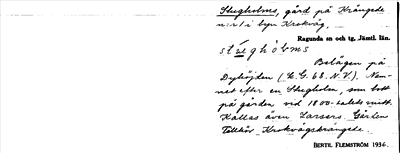 Stugholms, gård på Krångede
n:r 1 i byn Krokvåg.
Ragunda sn och tg. Jämtl. län.
stughòlms
Belägen på
Dyhöjden (K.G. 68. N.V.). Nam-
net efter en Stugholm, som bott
på gården vid 1800-talets mitt.
Kallas även Larsers. Gården
Tillhör Krokvågskrångede.
BERTIL FLEMSTRÖM 1936.